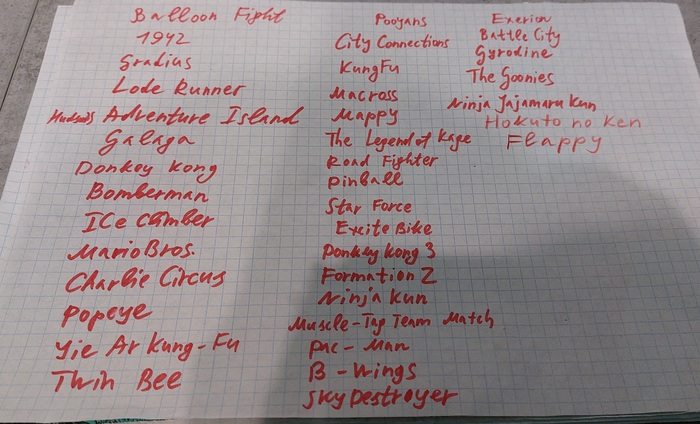 Balloon Fight
1942
Gradius
Lode Runner
Hudson's Adventure Island
Galaga
Donkey Kong
Bomberman
ICe Climber
Mario Bros.
Charlie Circus
Popeye
Yie Ar Kung-Fu
Twin Bee
Pooyans
City Connections
KungFu
Macross
Mappy
The Legend of Kage
Road Fighter
Pinball
Star Force
Excite Bike
Donkey Kong 3
Formation Z
Ninja Kun
Muscle-Tag Team Match
Pac-Man
B-Wings
Sky Destroyer
Exerion
Battle City
Gyrodine
The Goonies
Ninja Jajamaru Kun
Hokuto no Ken
Flappy